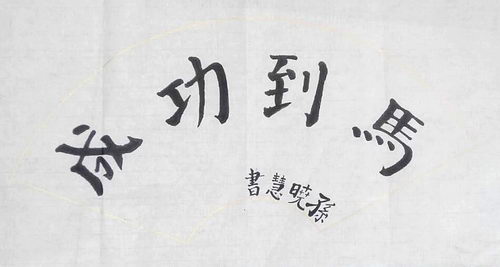 馬到功成
孫曉慧書